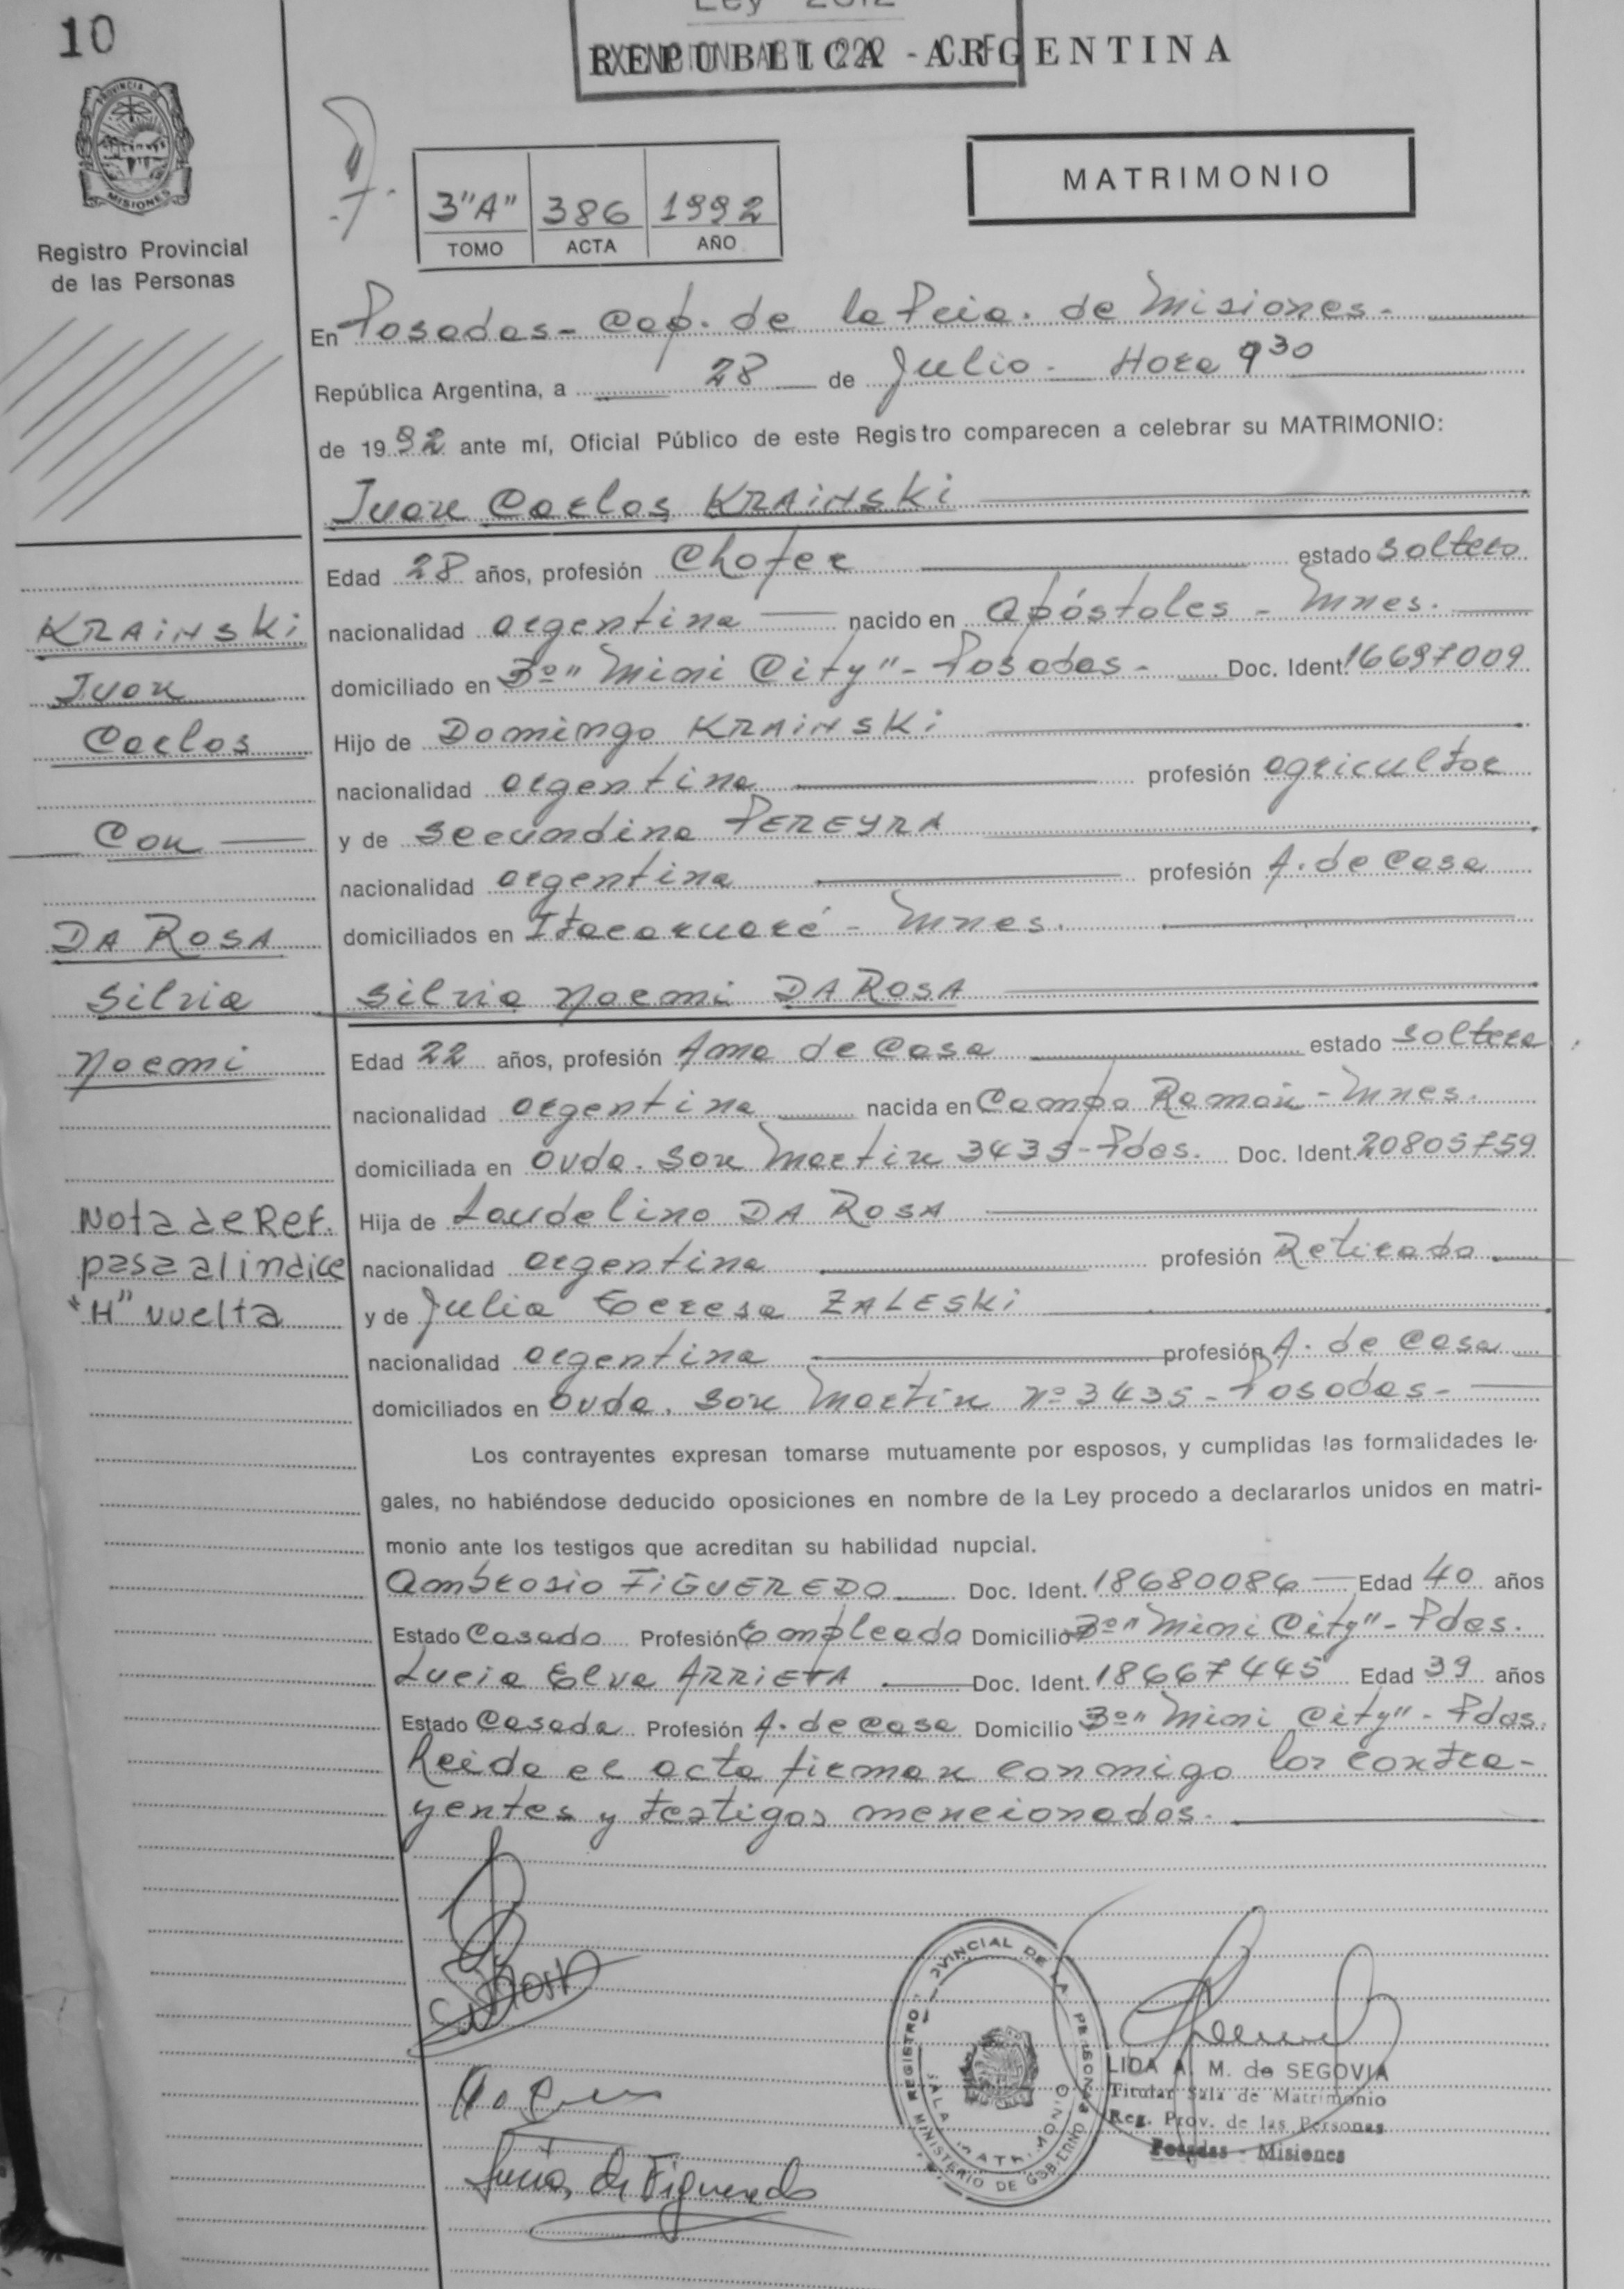 10
Ley 2812
REPUBLICA ARGENTINA
PROVINCIA DE
MISIONES
Registro Provincial
de las Personas
3"A" 386 1992
TOMO ACTA AÑO
MATRIMONIO
En Posadas - Cap. de la Pcia. de Misiones.
República Argentina, a 28 de Julio. Hora 9 30
de 1992 ante mí, Oficial Público de este Registro comparecen a celebrar su MATRIMONIO:
Juan Carlos KRAINSKI
Edad 28 años, profesión Chofer estado soltero
nacionalidad argentina nacido en Apóstoles - Mnes.
domiciliado en 3º "Mini City" - Posadas - Doc. Ident. 16697009
Hijo de Domingo KRAINSKI
nacionalidad argentina profesión agricultor
y de Secundina PEREYRA
nacionalidad argentina profesión A. de Casa
domiciliados en Itacaruaré - Mnes.
Silvia Noemi DA ROSA
Edad 22 años, profesión Ama de Casa estado soltera
nacionalidad argentina nacida en Campo Ramón - Mnes.
domiciliada en Avda. San Martin 3435 - Pdas. Doc. Ident. 20805759
Hija de Laudelino DA ROSA
nacionalidad argentina profesión Retirado
y de Julia Teresa ZALESKI
nacionalidad argentina profesión A. de Casa
domiciliados en Avda. San Martin Nº 3435 - Posadas -
Los contrayentes expresan tomarse mutuamente por esposos, y cumplidas las formalidades le-
gales, no habiéndose deducido oposiciones en nombre de la Ley procedo a declararlos unidos en matri-
monio ante los testigos que acreditan su habilidad nupcial.
Ambrosio FIGUEREDO Doc. Ident. 18680086 Edad 40 años
Estado Casado Profesión Empleado Domicilio 3º "Mini City" - Pdas.
Lucia Elva ARRIETA Doc. Ident. 18667445 Edad 39 años
Estado Casada Profesión A. de casa Domicilio 3º "Mini City" - Pdas.
Leida el acta firman conmigo los contra-
yentes y testigos mencionados.
KRAINSKI
Juan
Carlos
Con
DA ROSA
Silvia
Noemi
Nota de Ref.
pasa al indice
"H" vuelta
Lucia de Figueredo
REGISTRO PROVINCIAL DE LAS PERSONAS
MINISTERIO DE GOBIERNO
SALA MATRIMONIO
LIDA A. M. de SEGOVIA
Titular Sala de Matrimonio
Reg. Prov. de las Personas
Posadas - Misiones